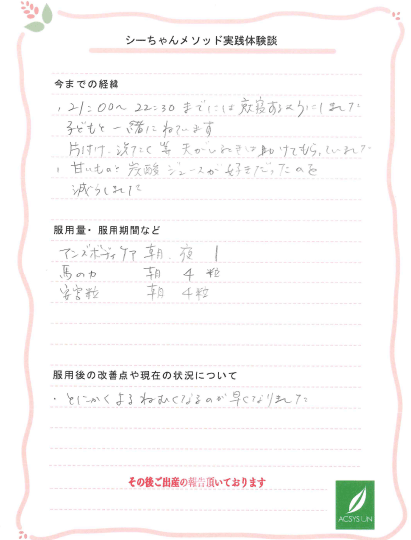 シーちゃんメソッド実践体験談
今までの経緯
・21:00〜22:30までには就寝するようにしました
子どもと一緒にねています
片付け、洗たく等 夫がいるときは助けてもらっていました
・甘いものと炭酸ジュースが好きだったのを
減らしました
服用量・服用期間など
アンズボディケア 朝、夜 1
馬の力 朝 4 粒
安宮粒 朝 4粒
服用後の改善点や現在の状況について
・とにかくよるねむくなるのが早くなりました
その後ご出産の報告頂いております
ACSYSLIN